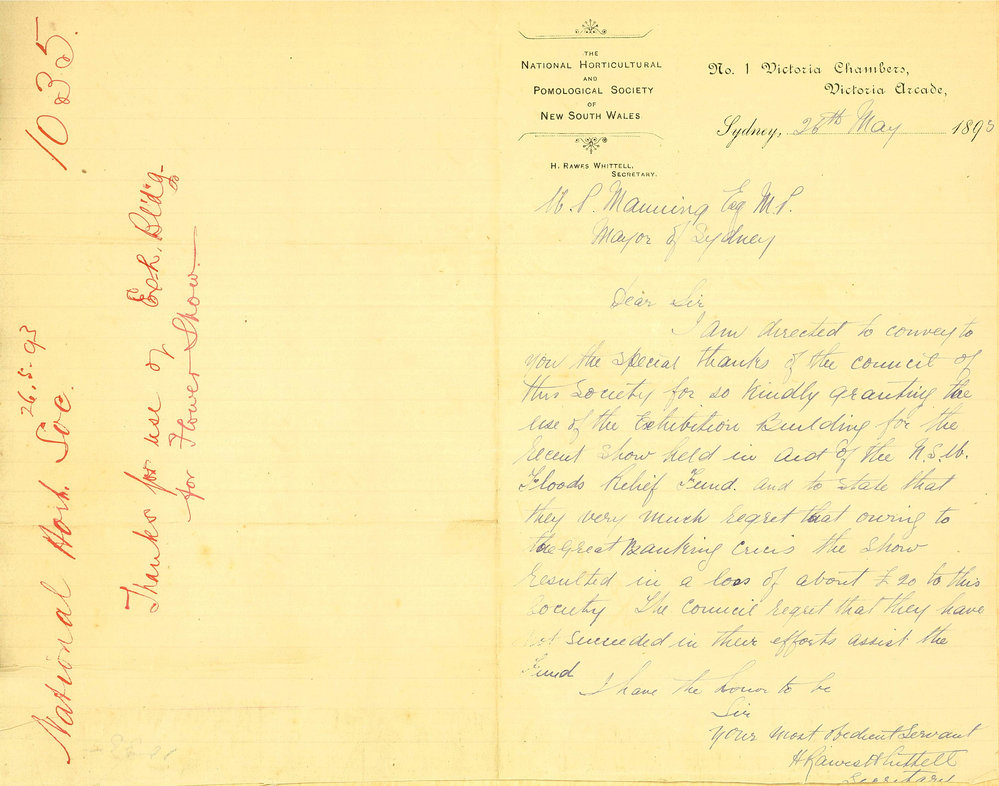 1035.
National Hort. Soc.
26.5.93
Thanks for use of Exh. Bld'g.
for Flower Show.
THE
NATIONAL HORTICULTURAL
AND
POMOLOGICAL SOCIETY
OF
NEW SOUTH WALES
H. RAWES WHITTELL,
SECRETARY.
No. 1 Victoria Chambers,
Victoria Arcade,
Sydney, 26th May 1893
W. P. Manning Esq M.P.
Mayor of Sydney
Dear Sir
I am directed to convey to
you the special thanks of the council of
this Society for so kindly granting the
use of the Exhibition Building for the
recent show held in aid of the N.S.W.
Floods Relief Fund. and to state that
they very much regret that owing to
the great Banking Crisis the show
resulted in a loss of about £20 to this
Society The Council regret that they have
not succeeded in their efforts assist the
Fund
I have the honor to be
Sir
your most obedient Servant
H Rawes Whittell
Secretary